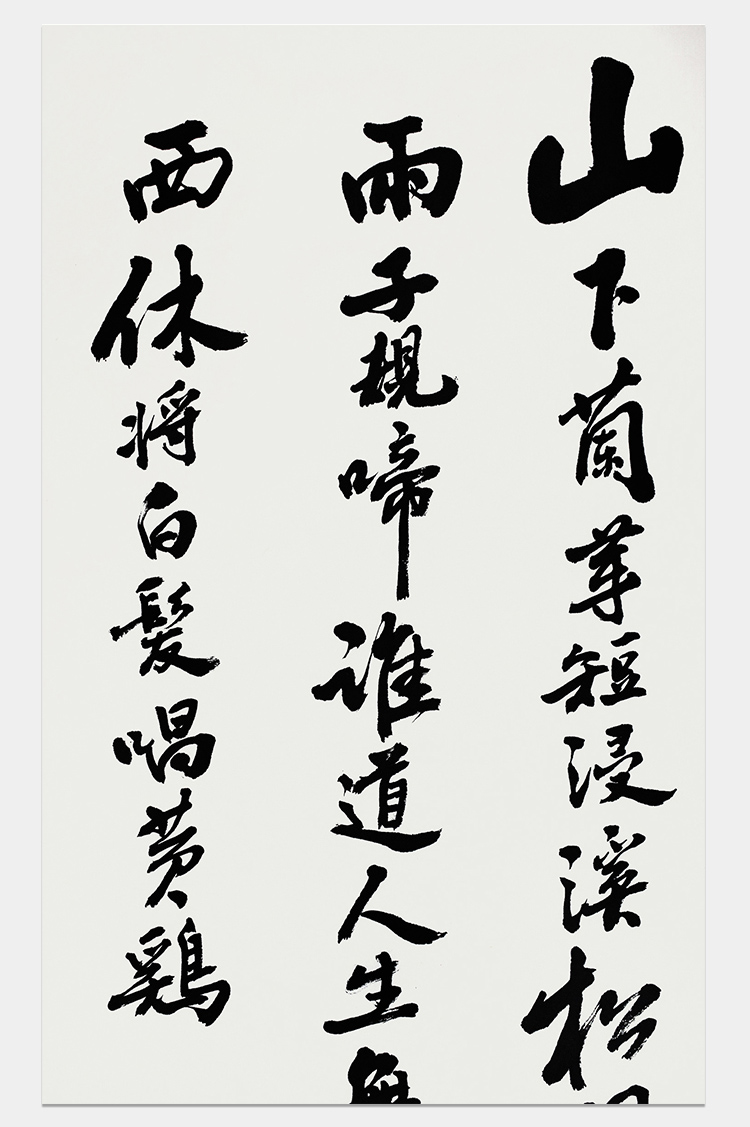 山下蘭芽短浸溪松
雨子規啼誰道人生無
西休将白髮唱黄鷄